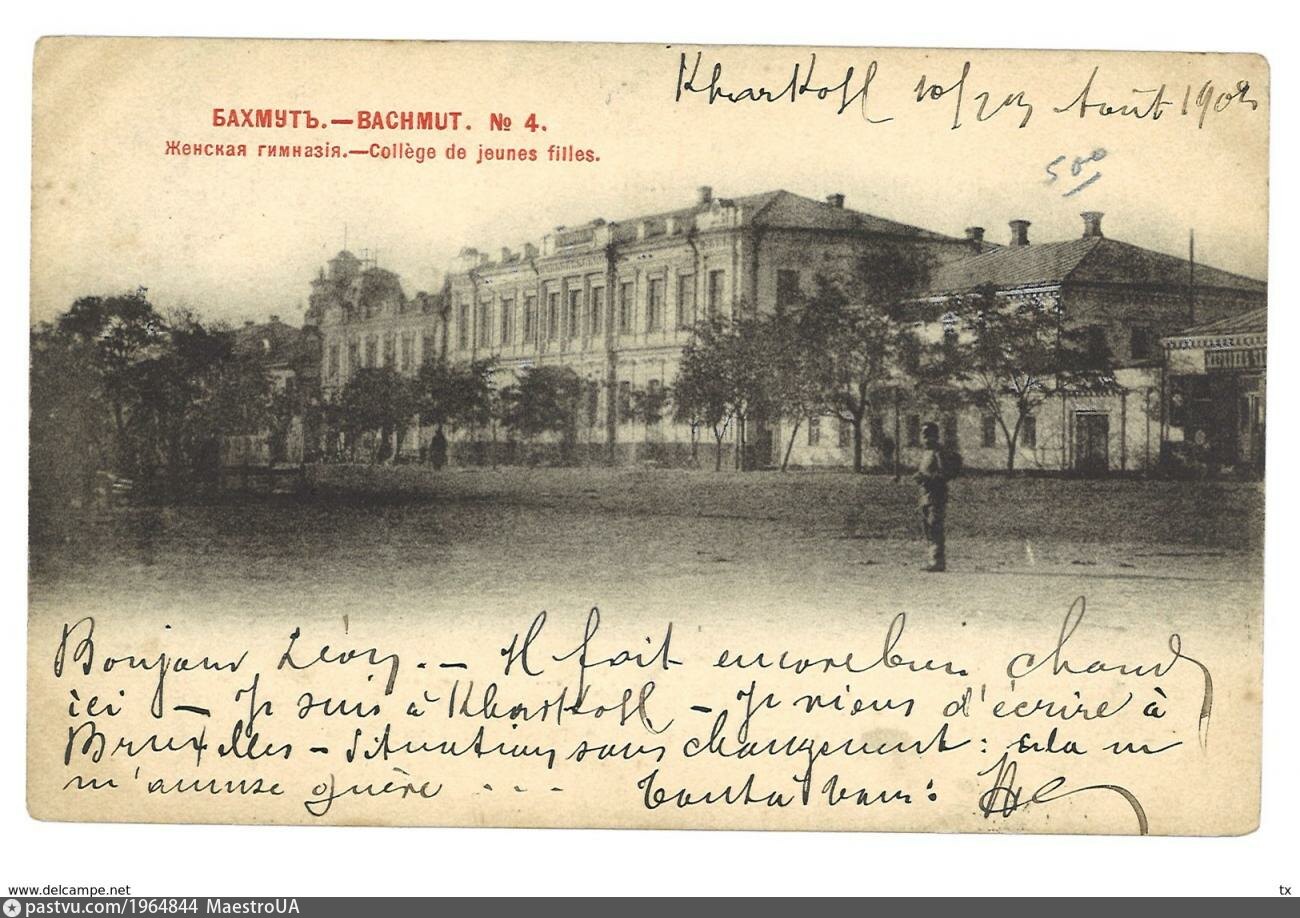 Kharkoff 10/23 Août 1902
БАХМУТЪ.—BACHMUT. № 4.
Женская гимназія.—Collège de jeunes filles.
500
Bonjour Léon.— Il fait encore bien chaud
ici — Je suis à Kharkoff — Je viens d'écrire à
Bruxelles — Situation sans changement : cela ne
m'amuse guère . . . Tout à vous :
www.delcampe.net
tx
pastvu.com/1964844 MaestroUA